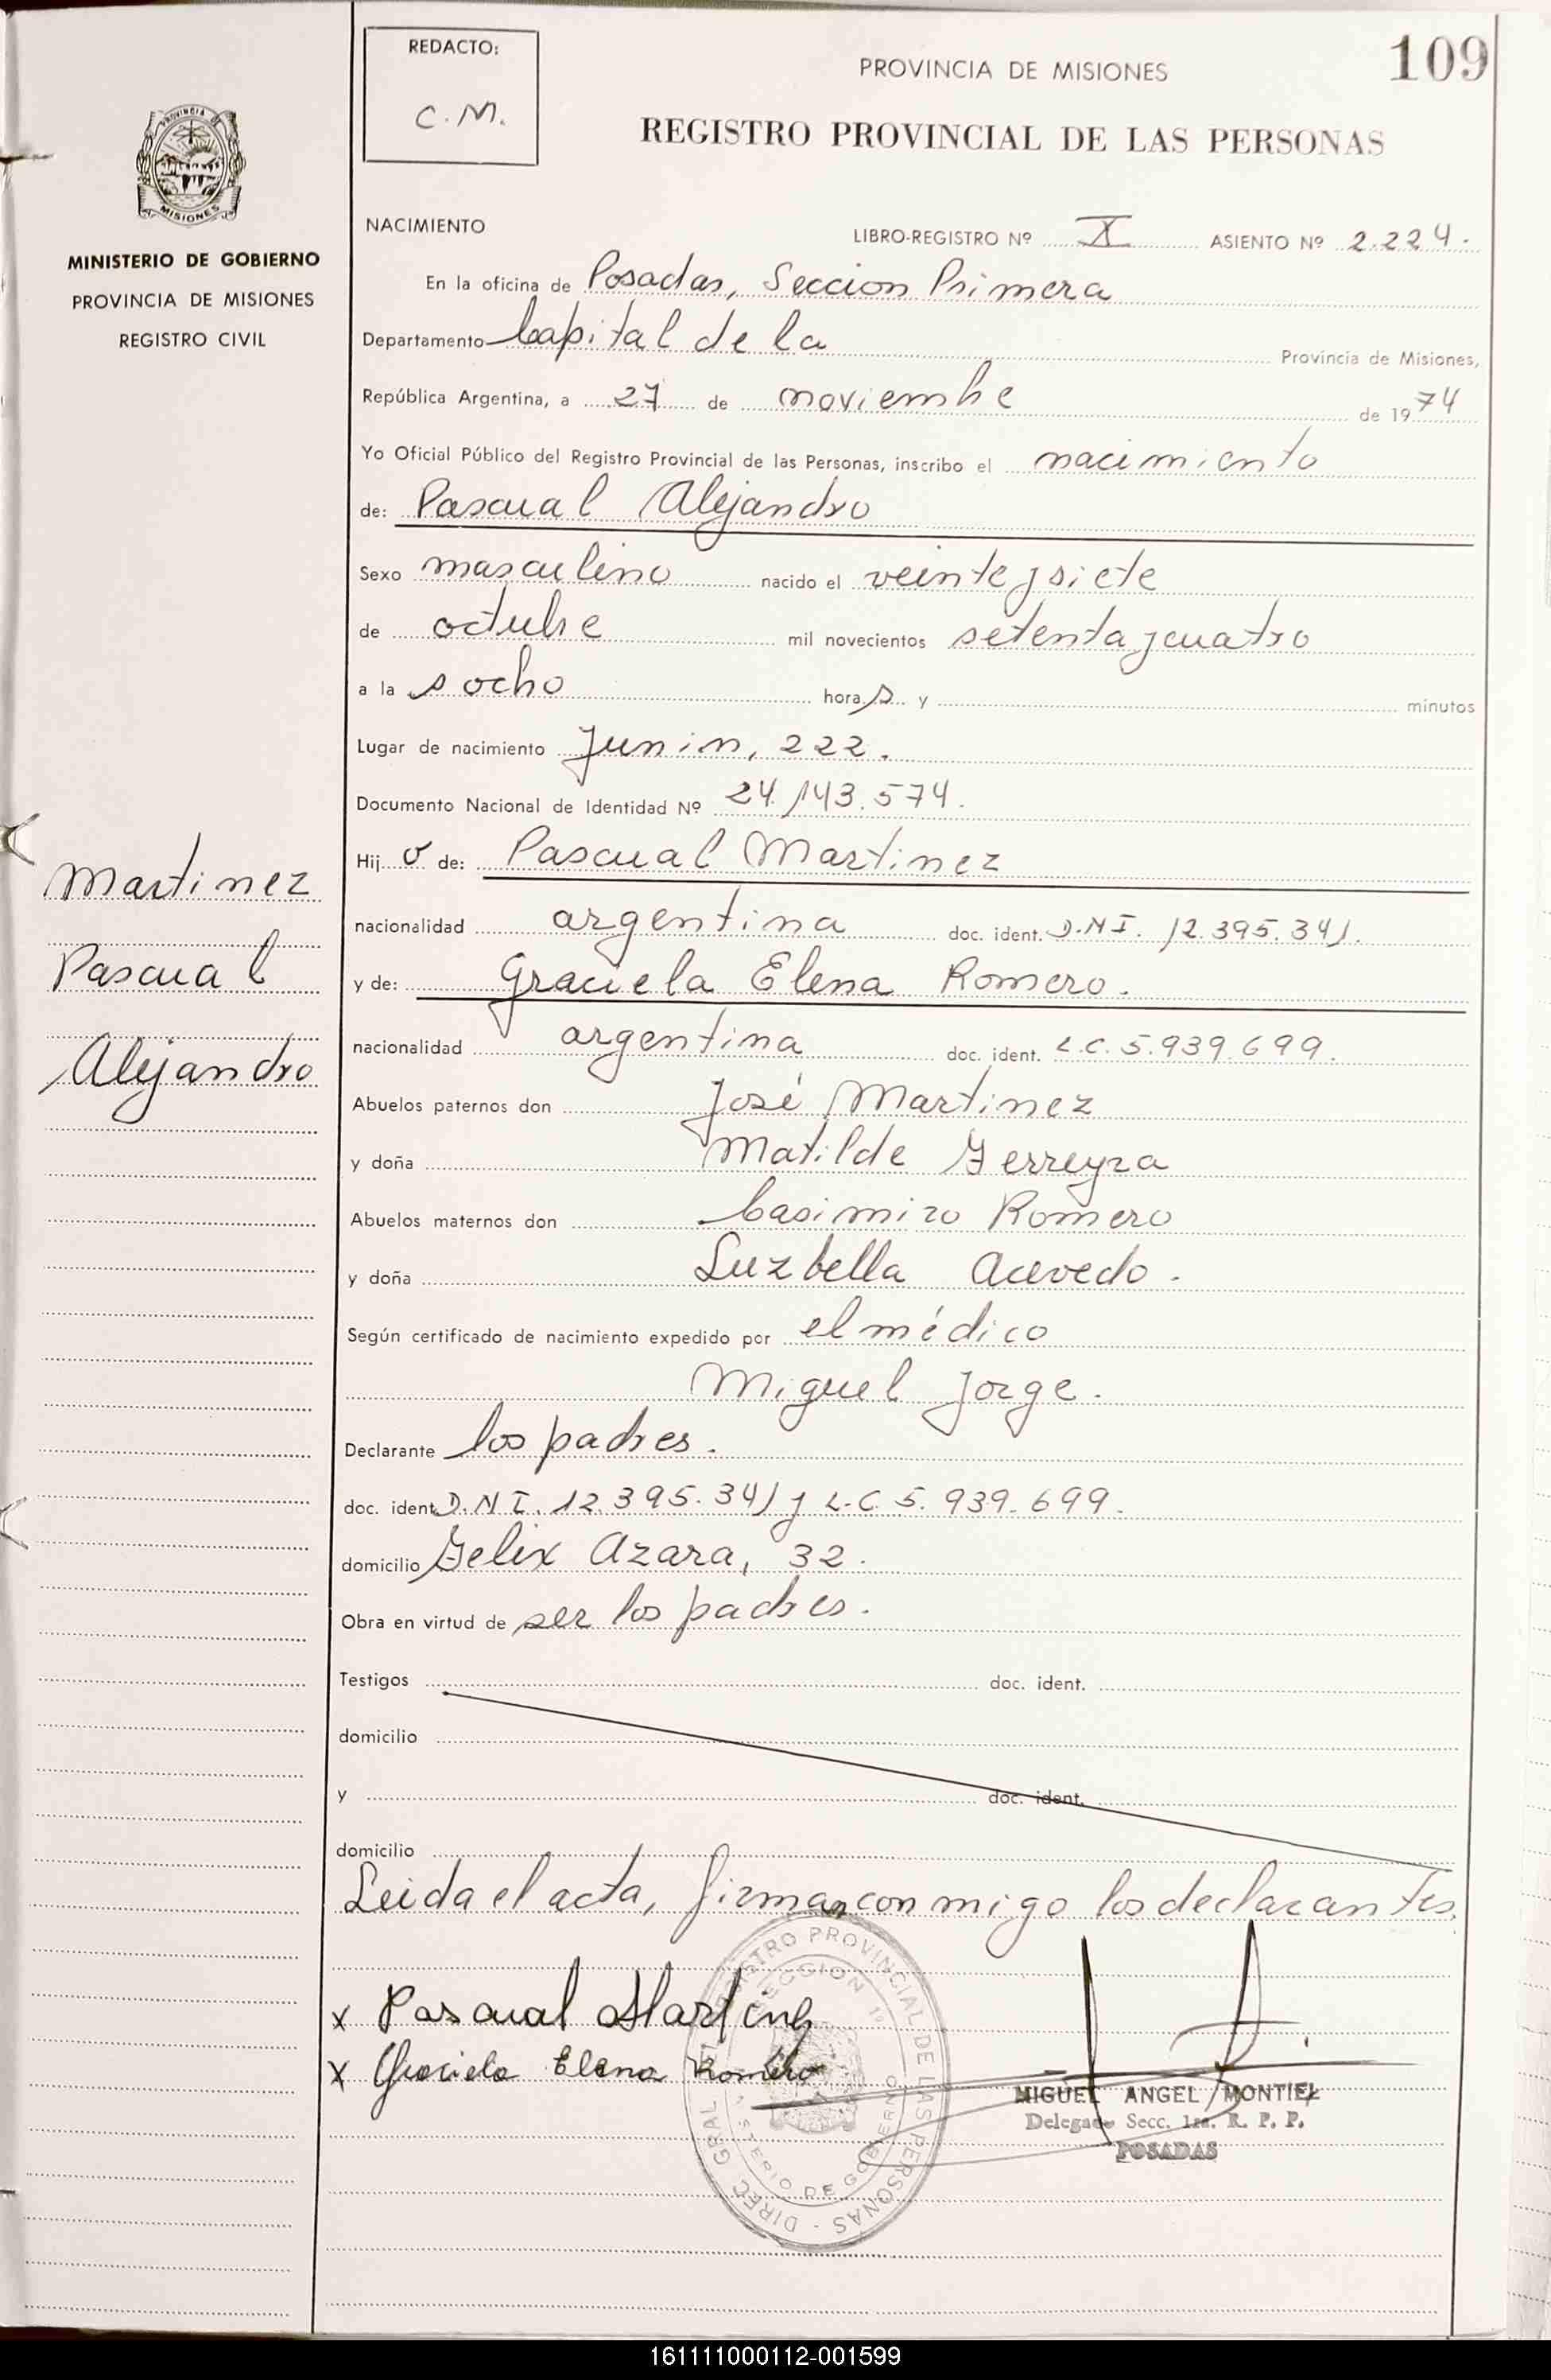 REDACTO:
C.M.
PROVINCIA DE MISIONES
109
REGISTRO PROVINCIAL DE LAS PERSONAS
PROVINCIA DE
MISIONES
MINISTERIO DE GOBIERNO
PROVINCIA DE MISIONES
REGISTRO CIVIL
NACIMIENTO
LIBRO-REGISTRO Nº X ASIENTO Nº 2.224.
En la oficina de Posadas, Seccion Primera
Departamento Capital de la Provincia de Misiones,
República Argentina, a 27 de noviembre de 1974
Yo Oficial Público del Registro Provincial de las Personas, inscribo el nacimiento
de: Pascual Alejandro
Sexo masculino nacido el veinte y siete
de octubre mil novecientos setenta y cuatro
a la s ocho horas y minutos
Lugar de nacimiento Junin, 222.
Documento Nacional de Identidad Nº 24.143.574.
Hijo de: Pascual Martinez
nacionalidad argentina doc. ident. D.N.I. 12.395.341.
y de: Graciela Elena Romero.
nacionalidad argentina doc. ident. L.C. 5.939.699.
Abuelos paternos don José Martinez
y doña Matilde Ferreyra
Abuelos maternos don Casimiro Romero
y doña Luzbella Acevedo.
Según certificado de nacimiento expedido por el médico
Miguel Jorge.
Declarante los padres.
doc. ident. D.N.I. 12.395.341 y L.C. 5.939.699.
domicilio Felix Azara, 32.
Obra en virtud de ser los padres.
Testigos doc. ident.
domicilio
y doc. ident.
domicilio
Leida el acta, firman conmigo los declarantes.
x Pascual Martinez
x Graciela Elena Romero
MIGUEL ANGEL MONTIEL
Delegado Secc. 1ra. R. P. P.
POSADAS
DIREC. GRAL. DEL REGISTRO PROVINCIAL DE LAS PERSONAS -
SECCION 1ª
MINISTERIO DE GOBIERNO
Martinez
Pascual
Alejandro
161111000112-001599